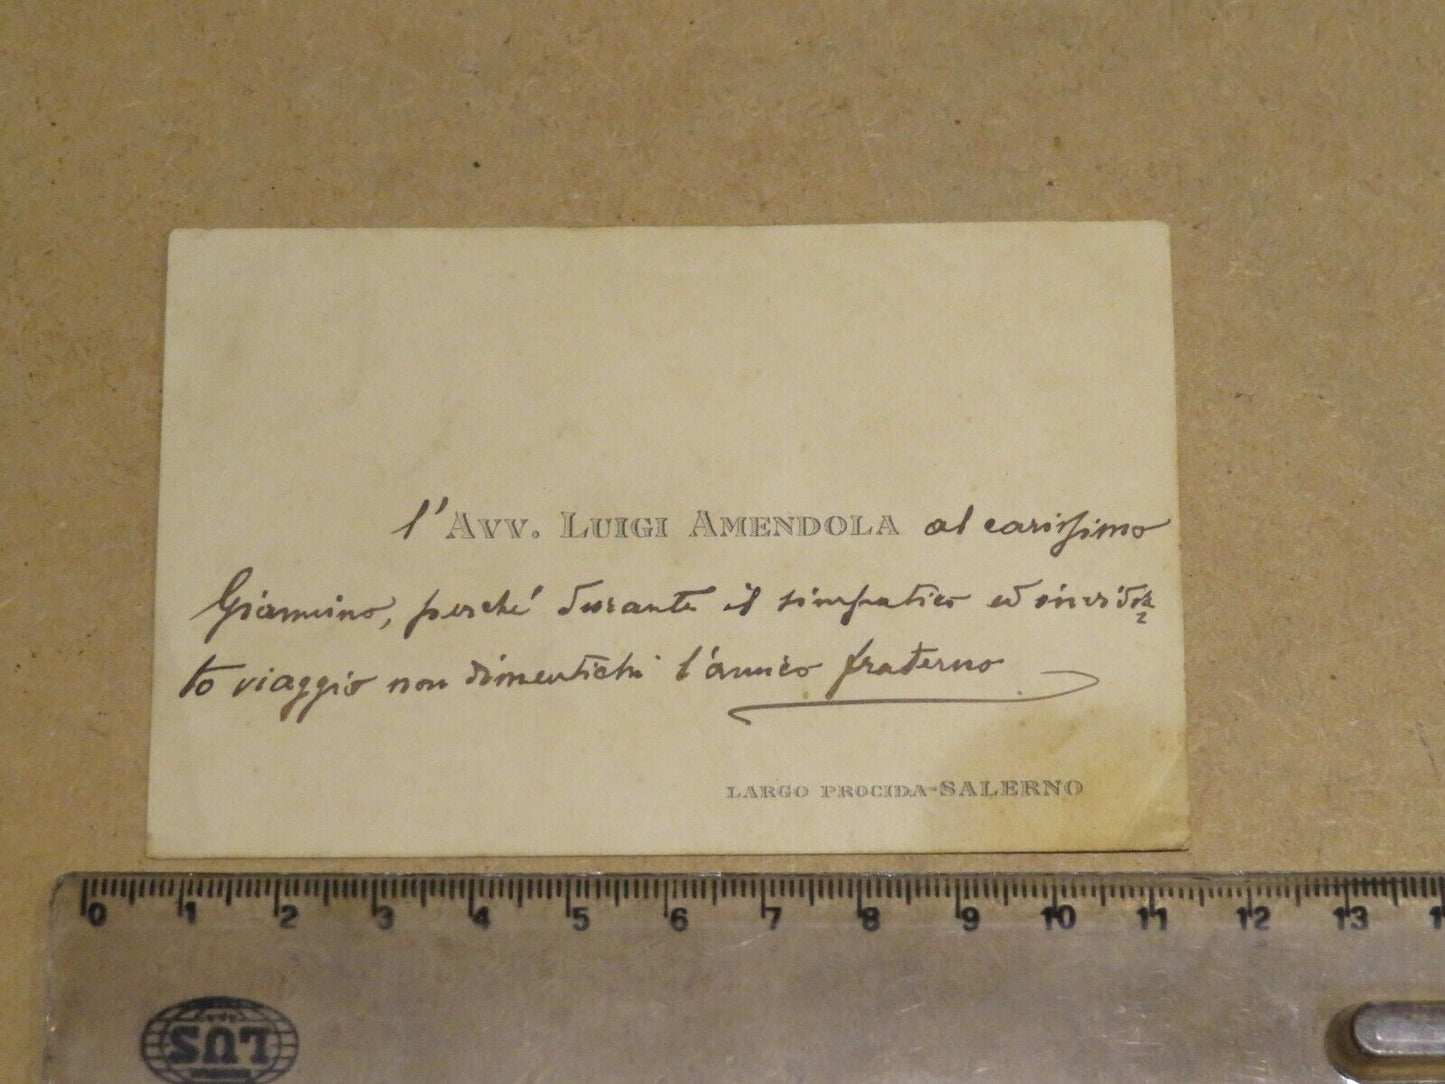 l'Avv. Luigi Amendola al carissimo
Giannino, perché durante il simpatico ed invidia
to viaggio non dimentichi l'amico fraterno
LARGO PROCIDA-SALERNO
0 1 2 3 4 5 6 7 8 9 10 11 12 13
LUS